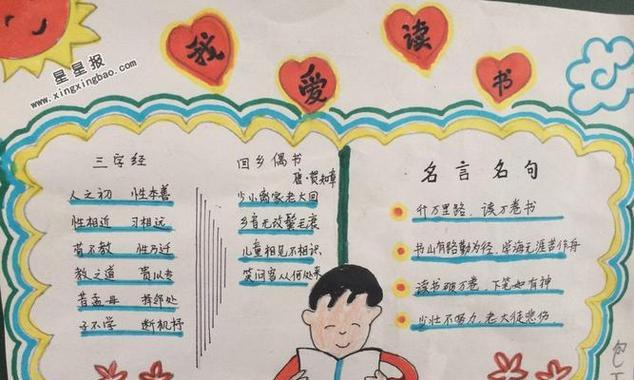 我爱读书
星星报
www.xingxingbao.com
三字经
人之初 性本善
性相近 习相远
苟不教 性乃迁
教之道 贵以专
昔孟母 择邻处
子不学 断机杼
回乡偶书
唐·贺知章
少小离家老大回
乡音无改鬓毛衰
儿童相见不相识
笑问客从何处来
名言名句
行万里路，读万卷书
书山有路勤为径，学海无涯苦作舟
读书破万卷，下笔如有神
少壮不努力，老大徒悲伤